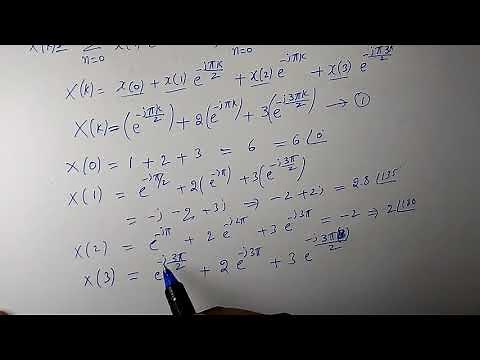 n=0 n=0
X(k) = x(0) + x(1) e^{-jπk/2} + x(2) e^{-jπk} + x(3) e^{-jπ3k/2}
X(k) = (e^{-jπk/2}) + 2(e^{-jπk}) + 3(e^{-j3πk/2}) → ①
X(0) = 1 + 2 + 3 = 6 = 6∠0
X(1) = e^{-jπ/2} + 2(e^{-jπ}) + 3(e^{-j3π/2})
= -j - 2 + 3j ⇒ -2 + 2j = 2.8∠135
X(2) = e^{-jπ} + 2 e^{-j2π} + 3 e^{-j3π} = -2 → 2∠180
X(3) = e^{-j3π/2} + 2 e^{-j3π} + 3 e^{-j3π(3)/2}